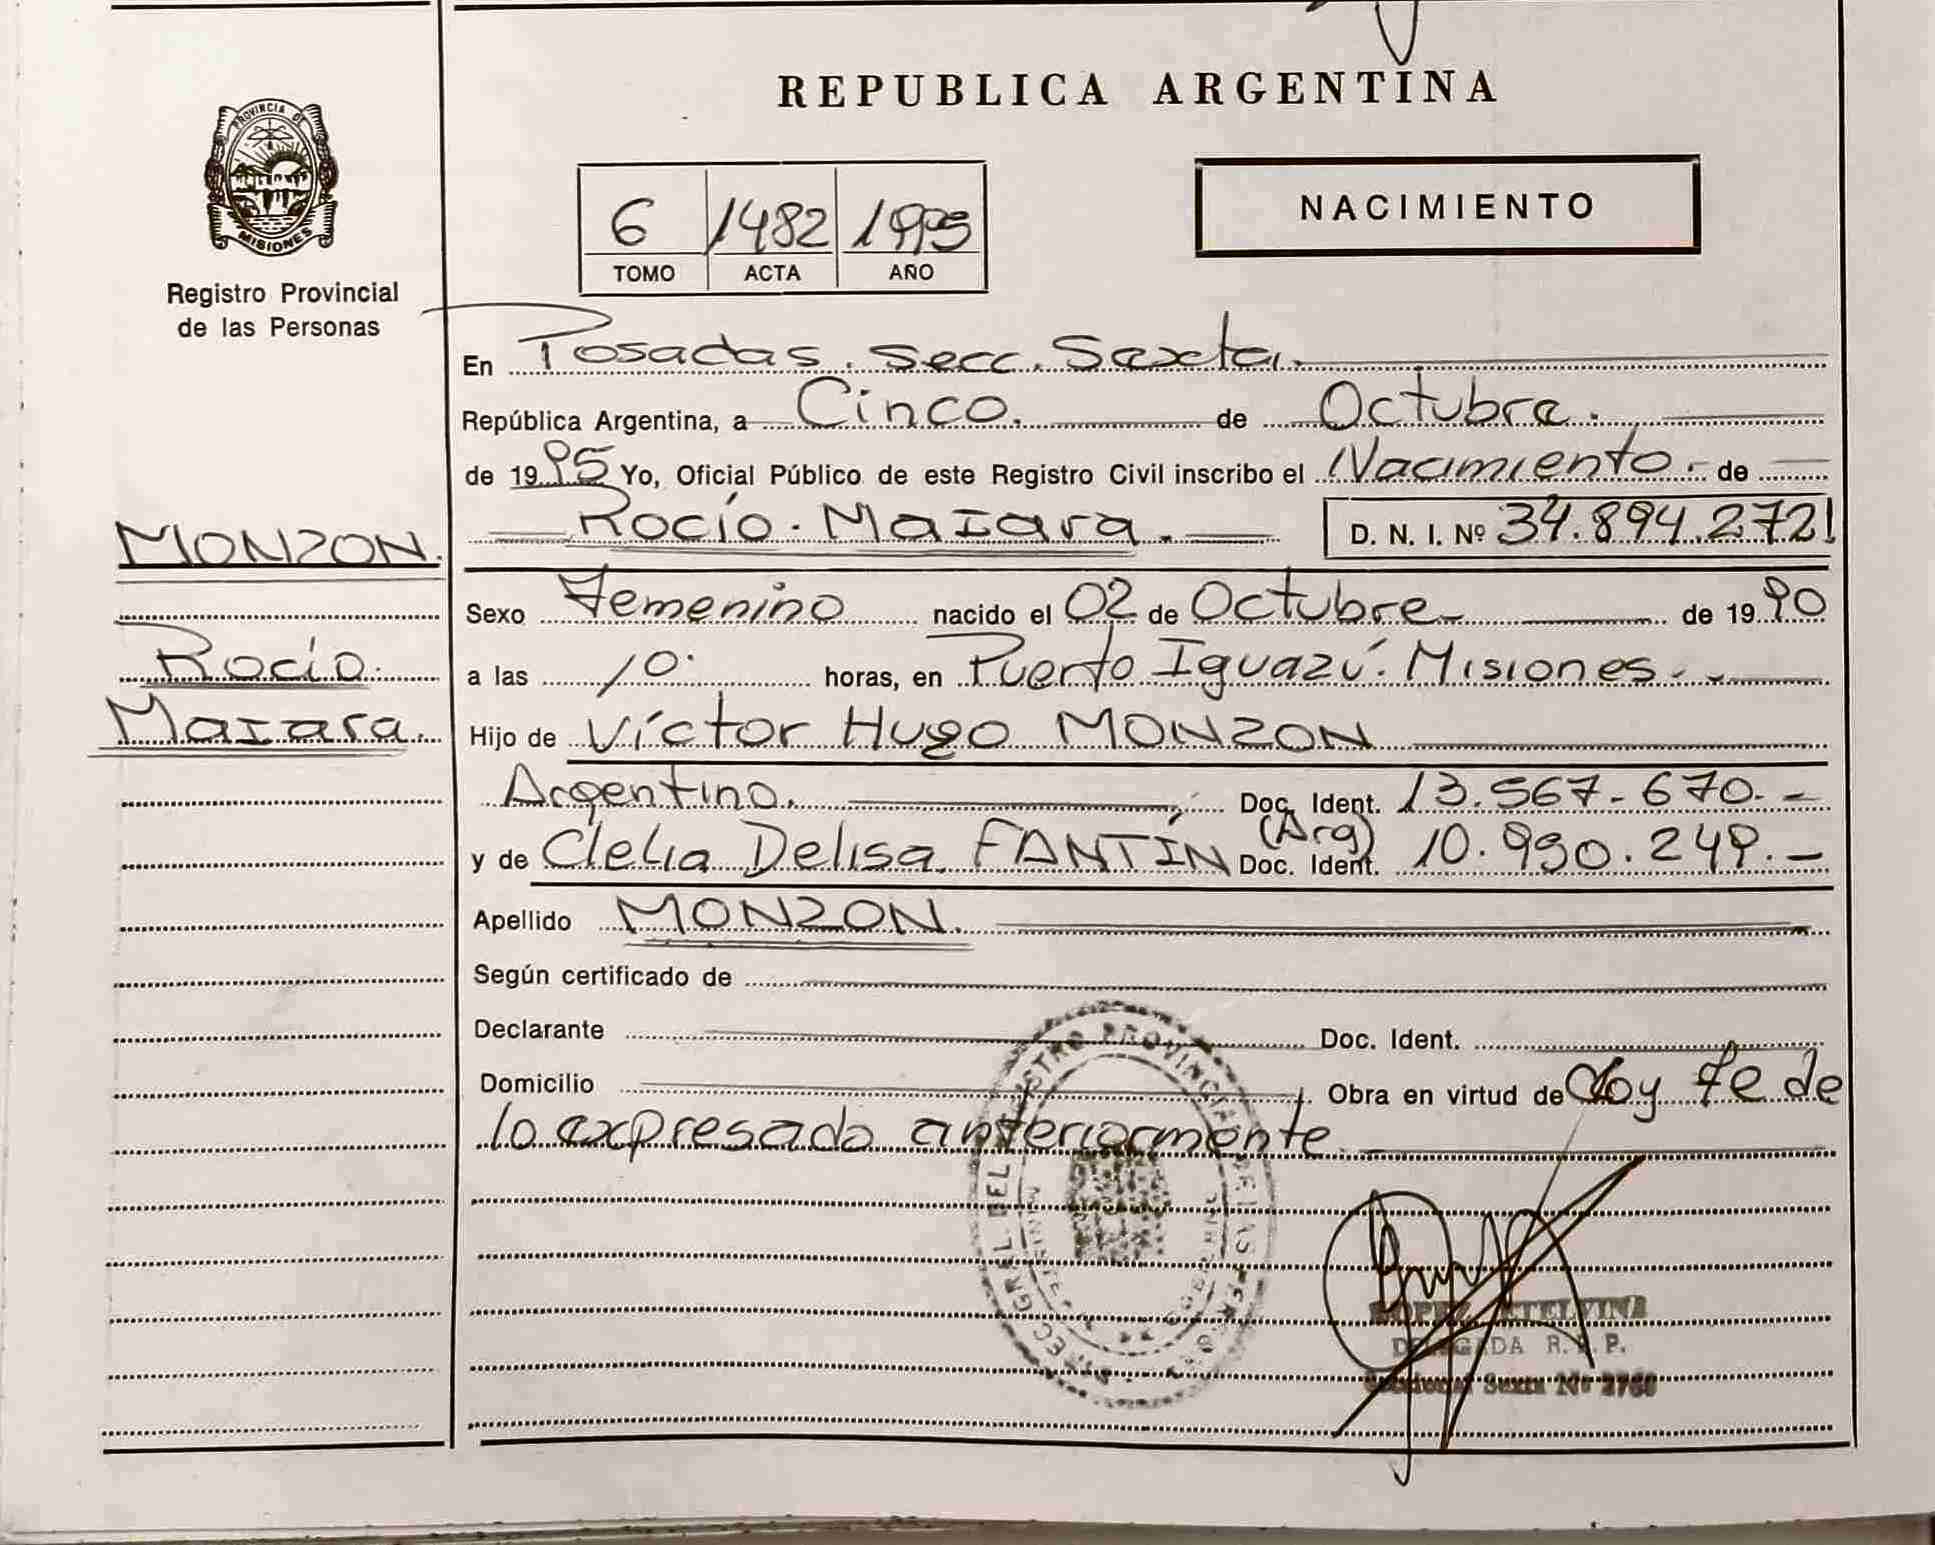 REPUBLICA ARGENTINA
PROVINCIA DE
MISIONES
Registro Provincial
de las Personas
6 1482 1995
TOMO ACTA AÑO
NACIMIENTO
En Posadas. Secc. Sexta.
República Argentina, a Cinco. de Octubre.
de 1995 Yo, Oficial Público de este Registro Civil inscribo el Nacimiento. de
Rocío. Maiara. D. N. I. Nº 34.894.272
MONZON.
Rocío.
Maiara.
Sexo Femenino nacido el 02 de Octubre de 1990
a las 10. horas, en Puerto Iguazú. Misiones.
Hijo de Víctor Hugo MONZON
Argentino. Doc. Ident. 13.567.670.-
y de Clelia Delisa FANTÍN (Arg) Doc. Ident. 10.990.249.-
Apellido MONZON.
Según certificado de
Declarante Doc. Ident.
Domicilio Obra en virtud de doy fe de
lo expresado anteriormente.
DIRECC. GRAL. DEL REGISTRO PROVINCIAL DE LAS PERSONAS
LOPEZ ETELVINA
DELEGADA R. P. P.
Seccional Sexta Nº 2760